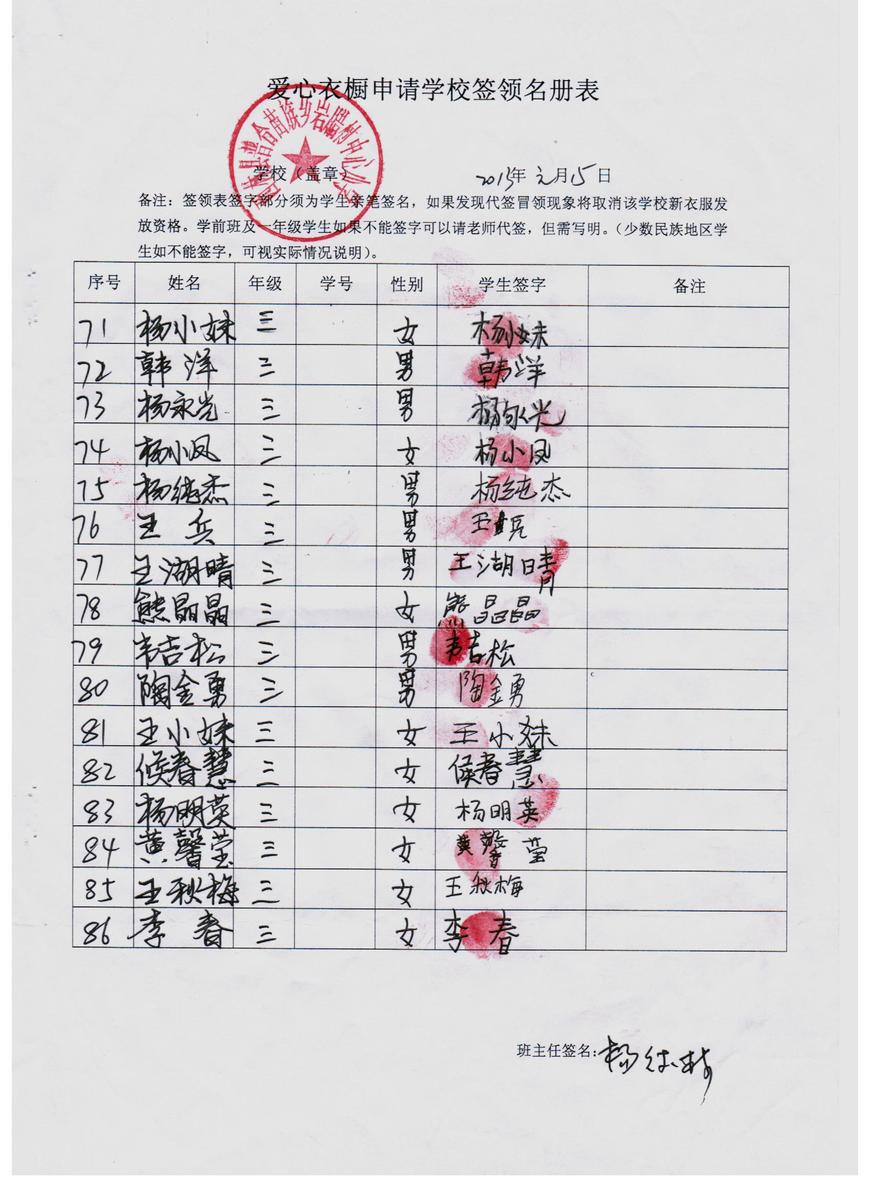 爱心衣橱申请学校签领名册表
普合苗族乡岩腊村中心小学
学校（盖章） 2013年 元月15日
备注：签领表签字部分须为学生亲笔签名，如果发现代签冒领现象将取消该学校新衣服发
放资格。学前班及一年级学生如果不能签字可以请老师代签，但需写明。（少数民族地区学
生如不能签字，可视实际情况说明）。
序号 姓名 年级 学号 性别 学生签字 备注
71 杨小妹 三 女 杨小妹
72 韩洋 三 男 韩洋
73 杨永光 三 男 杨永光
74 杨小凤 三 女 杨小凤
75 杨纯杰 三 男 杨纯杰
76 王兵 三 男 王兵
77 王湖晴 三 男 王湖晴
78 熊晶晶 三 女 熊晶晶
79 韦吉松 三 男 韦吉松
80 陶金勇 三 男 陶金勇
81 王小妹 三 女 王小妹
82 候春慧 三 女 候春慧
83 杨明英 三 女 杨明英
84 黄馨莹 三 女 黄馨莹
85 王秋梅 三 女 王秋梅
86 李春 三 女 李春
班主任签名：杨